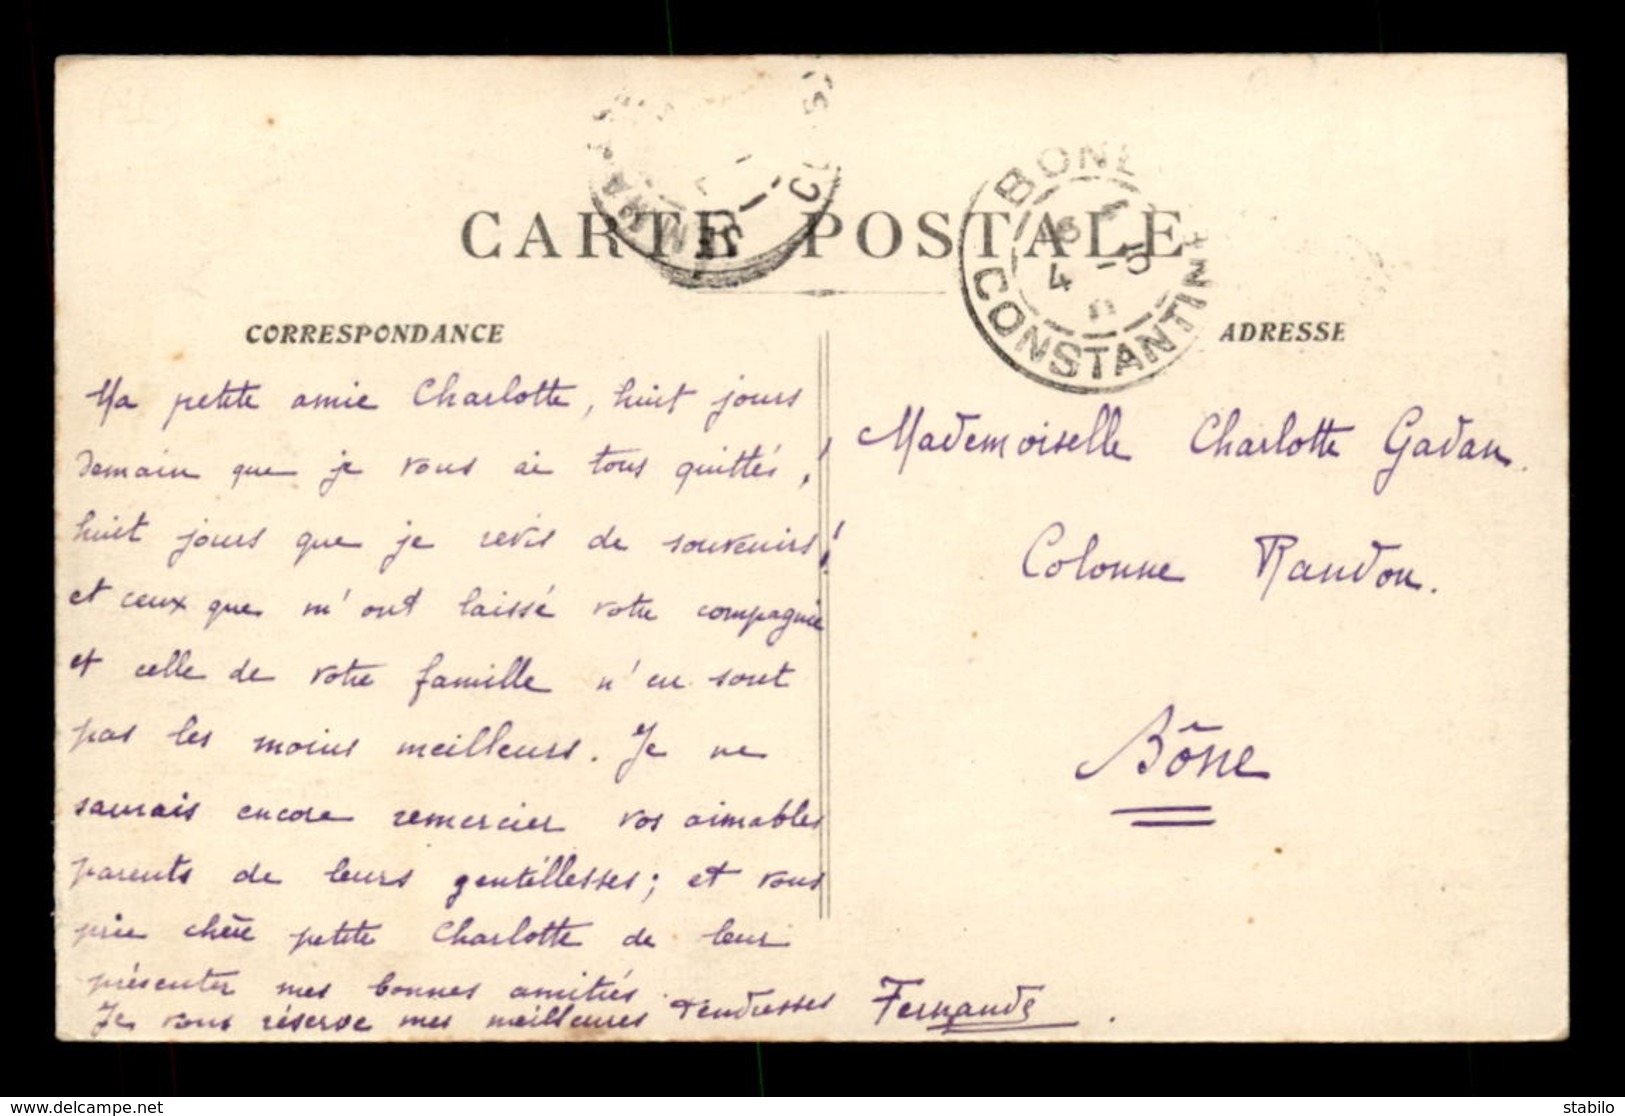 CARTE POSTALE
BONE
16 4
-10
CONSTANTINE
CORRESPONDANCE
ADRESSE
Ma petite amie Charlotte, huit jours
demain que je vous ai tous quittés,!
huit jours que je revis de souvenirs!
et ceux que m'ont laissé votre compagnie
et celle de votre famille n'en sont
pas les moins meilleurs. Je ne
saurais encore remercier vos aimables
parents de leurs gentillesses; et vous
prie chère petite Charlotte de leur
présenter mes bonnes amitiés.
Je vous réserve mes meilleures tendresses
Fernande.
Mademoiselle Charlotte Gadan.
Colonne Randon.
Bône
www.delcampe.net
stabilo